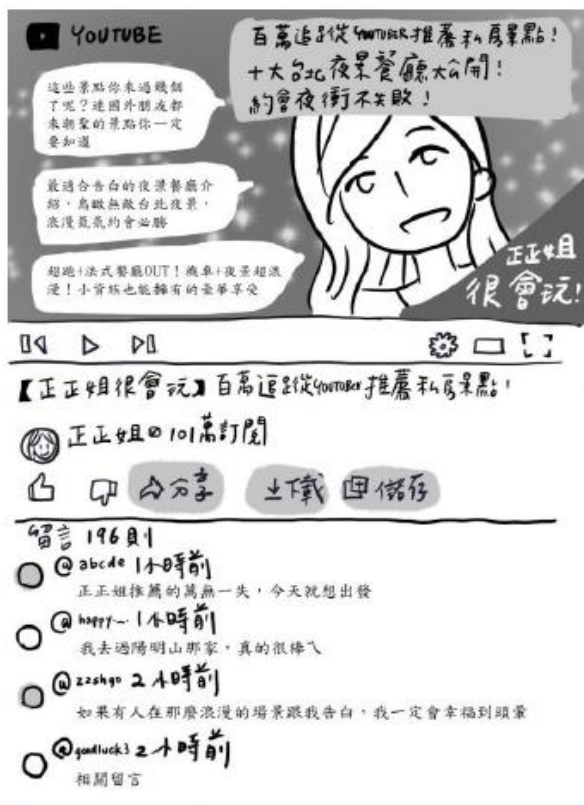 YOUTUBE
百萬追蹤YOUTUBER推薦私房景點!
十大台北夜景餐廳大公開!
約會夜衝不失敗!
這些景點你來過幾個
了呢?連國外朋友都
來朝聖的景點你一定
要知道
最適合告白的夜景餐廳介
紹,鳥瞰無敵台北夜景,
浪漫氣氛約會必勝
超跑+法式餐廳OUT!機車+夜景超浪
漫!小資族也能擁有的豪華享受
正正姐
很會玩!
【正正姐很會玩】百萬追蹤YOUTUBER推薦私房景點!
正正姐 101萬訂閱
分享 下載 儲存
留言 196則
@abcde 1小時前
正正姐推薦的萬無一失,今天就想出發
@happy~ 1小時前
我去過陽明山那家,真的很棒ㄟ
@zzshgo 2小時前
如果有人在那麼浪漫的場景跟我告白,我一定會幸福到頭暈
@goodluck3 2小時前
相關留言